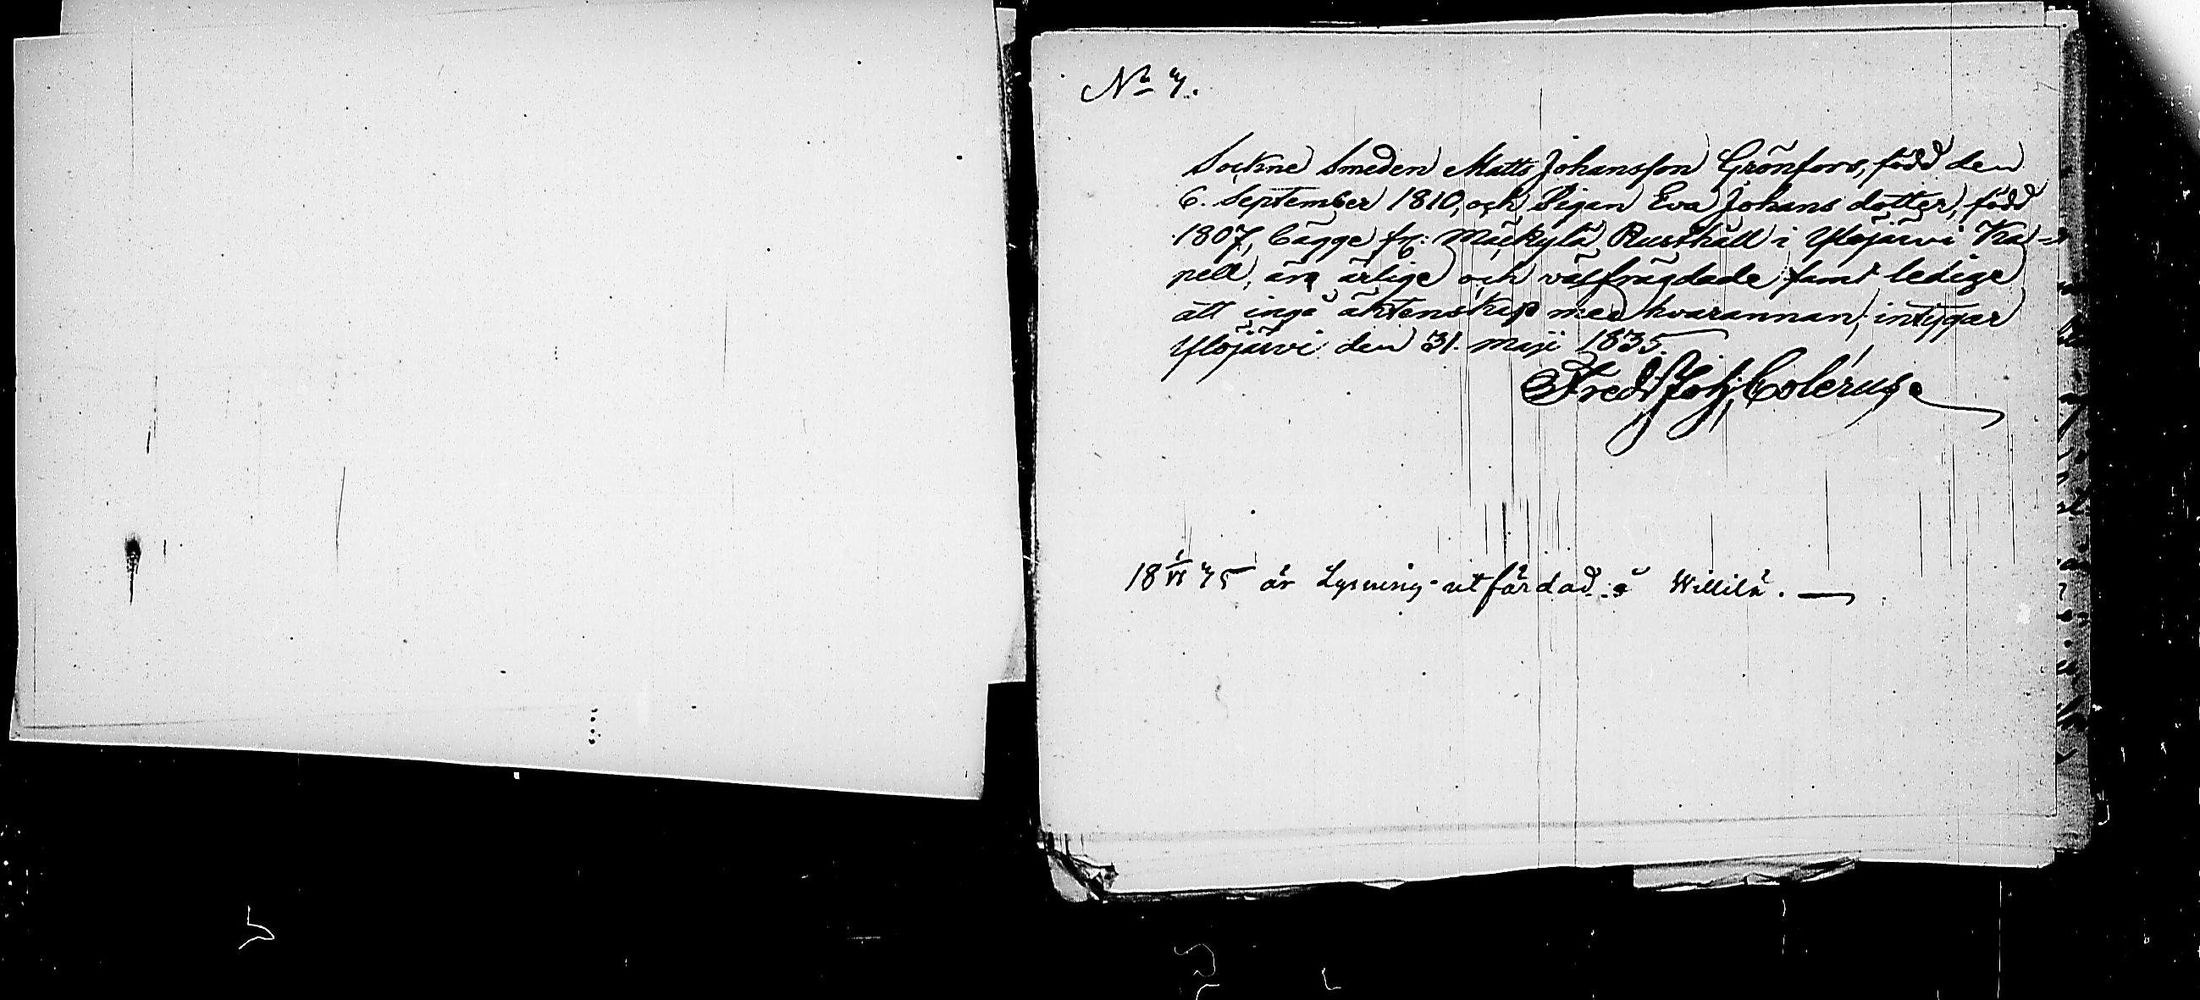 No 7.
Sockne Smeden Matts Johansson Grönfors, född den
6. September 1810, och Pigan Eva Johans dotter, född
1807, bägge fr: Mäckylä Rusthåll i Ylöjärvi Ka-
pell, äro ärlige och välfrägdade samt ledige
att ingå äktenskap med hvarannan; intygar
Ylöjärvi den 31. Maji 1835.
Fred: Joh: Colérus.
är Lysning utfärdad å Willilä.